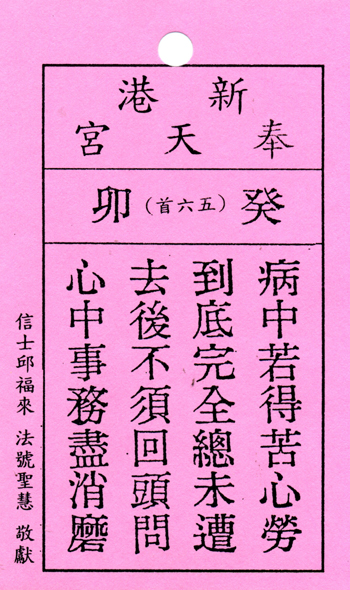 新港
奉天宮
癸（五六首）卯
病中若得苦心勞
到底完全總未遭
去後不須回頭問
心中事務盡消磨
信士邱福來 法號聖慧 敬獻